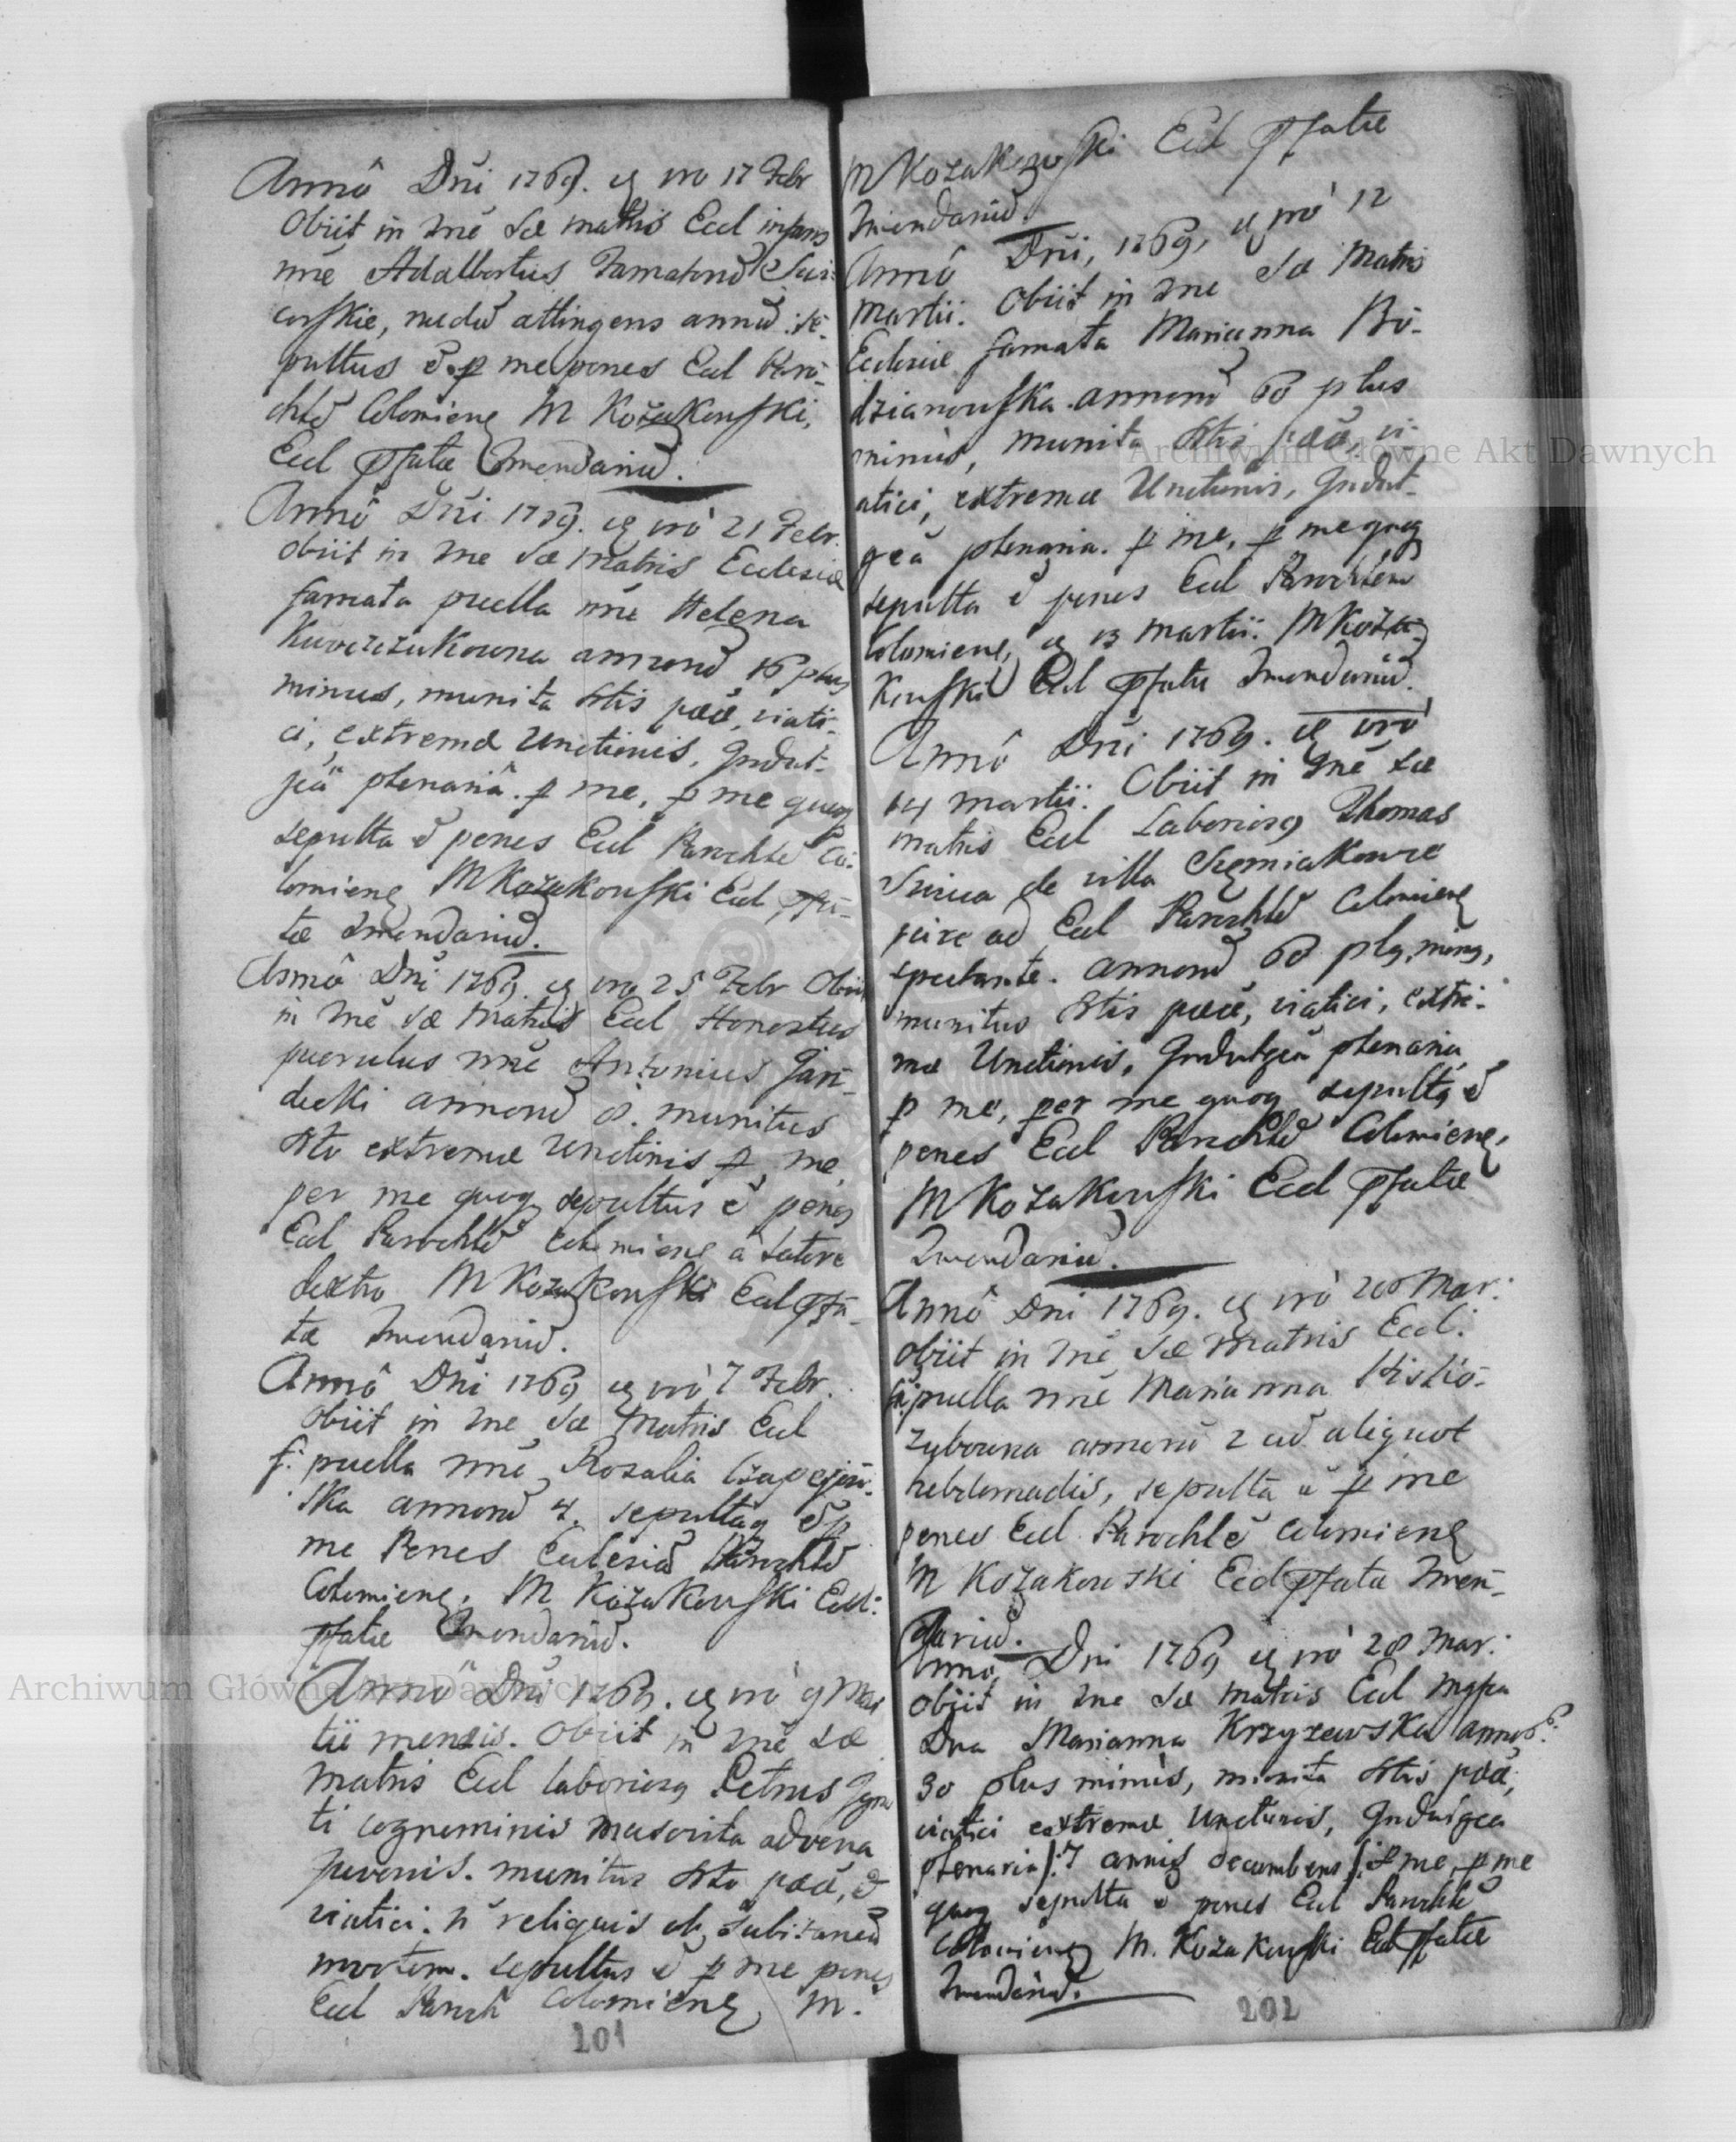 Annô Dñi 1769. q vro 17 Febr
Obiit in Cne Sæ matris Eccl infans
nne Adalbertus Famatorũ
corskie, nudũ attingens annũ: se-
pultus ẽ p me penes Eccl Paro-
chlẽ Colomienq M Kozakouski,
Eccl pfatæ Cmendariũ.
Annô Dñi 1769. q vrò 21 Febr.
obiit in Cne Sæ Matris Ecclesiæ
famata puella nñe Helena
annorũ 16 plus
minus, munita Stis pœæ, viati-
ci, extremæ Unctionis, Indul-
geã plenariâ. p me, p me quoq
sepulta ẽ penes Eccl Parochlẽ Co-
lomienq M Kozakouski Eccl pfa-
tæ Cmendariũ.
Annô Dñi 1769. q vro 25 Febr Obiit
in Cnẽ Sæ Matris Eccl Honestus
puerulus nñe Antonius Gan-
decki annorũ 8. munitus
Sto extremæ Unctionis p me,
per me quoq sepultus ẽ penes
Eccl Parochlẽ Colomienq â latere
dextro M Kozakouski Eccl pfa-
tæ Cmendariũ.
Annô Dñi 1769 q vrò 7 Febr.
obiit in Cne Sæ Matris Eccl
f: puella nñe Rosalia
ska annorũ 4. sepultaq ẽ p
me Penes Ecclesiã Parochlẽ
Colomienq. M Kozakouski Eccl:
pfatæ Cmendariũ.
Annô Dñi 1769. q vrò 9 Mar
tii mensis. Obiit in Cnẽ Sæ
Matris Eccl laboriosq Petrus Igna
ti cognominis masovita advena
juvenis. munitus Sto pœæ, &
viatici. ñ reliquis ob subitaneã
mortem. sepultus ẽ p me penes
Eccl Paroch Colomienq M.
201
M Kozakowski Eccl pfatæ
Cmendariũ.
Annô Dñi, 1769, q vrò 12
Martii. Obiit in Cne Sæ Matris
Ecclesiæ famata Marianna Bo-
dzianouska annorũ 60 plus
minùs, munita Stis pœæ, vi-
atici, extremæ Unctionis, Indul-
geã plenaria. p me, p me quoq
sepulta ẽ penes Eccl Parochlem
Colomienq, q 13 Martii. M Koza-
kouski Eccl pfatæ Cmendariũ.
Annô Dñi 1769. q vrò
14 Martii. Obiit in Cnẽ Sæ
matris Eccl Laboriosq Thomas
de villa Szemiakowce
jure ad Eccl Parochlẽ Colomienq
spectante. annorũ 60 plq, minq,
munitus Stis pœæ, viatici, extre-
mæ Unctionis, Indulgeã plenaria
p me, per me quoq sepultq ẽ
penes Eccl Parochlẽ Colomienq,
M Kozakouski Eccl pfatæ
Cmendariũ.
Annô Dñi 1769. q vrò 20 Mar:
obiit in Cnẽ Sæ Matris Eccl:
f: puella nñe Marianna Kisko-
zubowna annorũ 2 cũ aliquot
hebdomadis, sepulta ẽ p me
penes Eccl Parochlẽ Colomienq
M Kozakowski Eccl pfatæ Cmen-
dariũ.
Anno Dni 1769 q vrò 28 Mar:
obiit in Cne Sæ Matris Eccl Mgfca
Dna Marianna Krzyzewska annorũ
30 plus minùs, munita Stis pœæ,
viatici extremæ Unctionis, Indulgea
plenaria /: 7 annis decumbens :/ p me, p me
quoq sepulta ẽ penes Eccl Parochlẽ
Colomienq M. Kozakouski Eccl pfatæ
Cmendariũ.
202
Archiwum Główne Akt Dawnych
Archiwum Główne Akt Dawnych